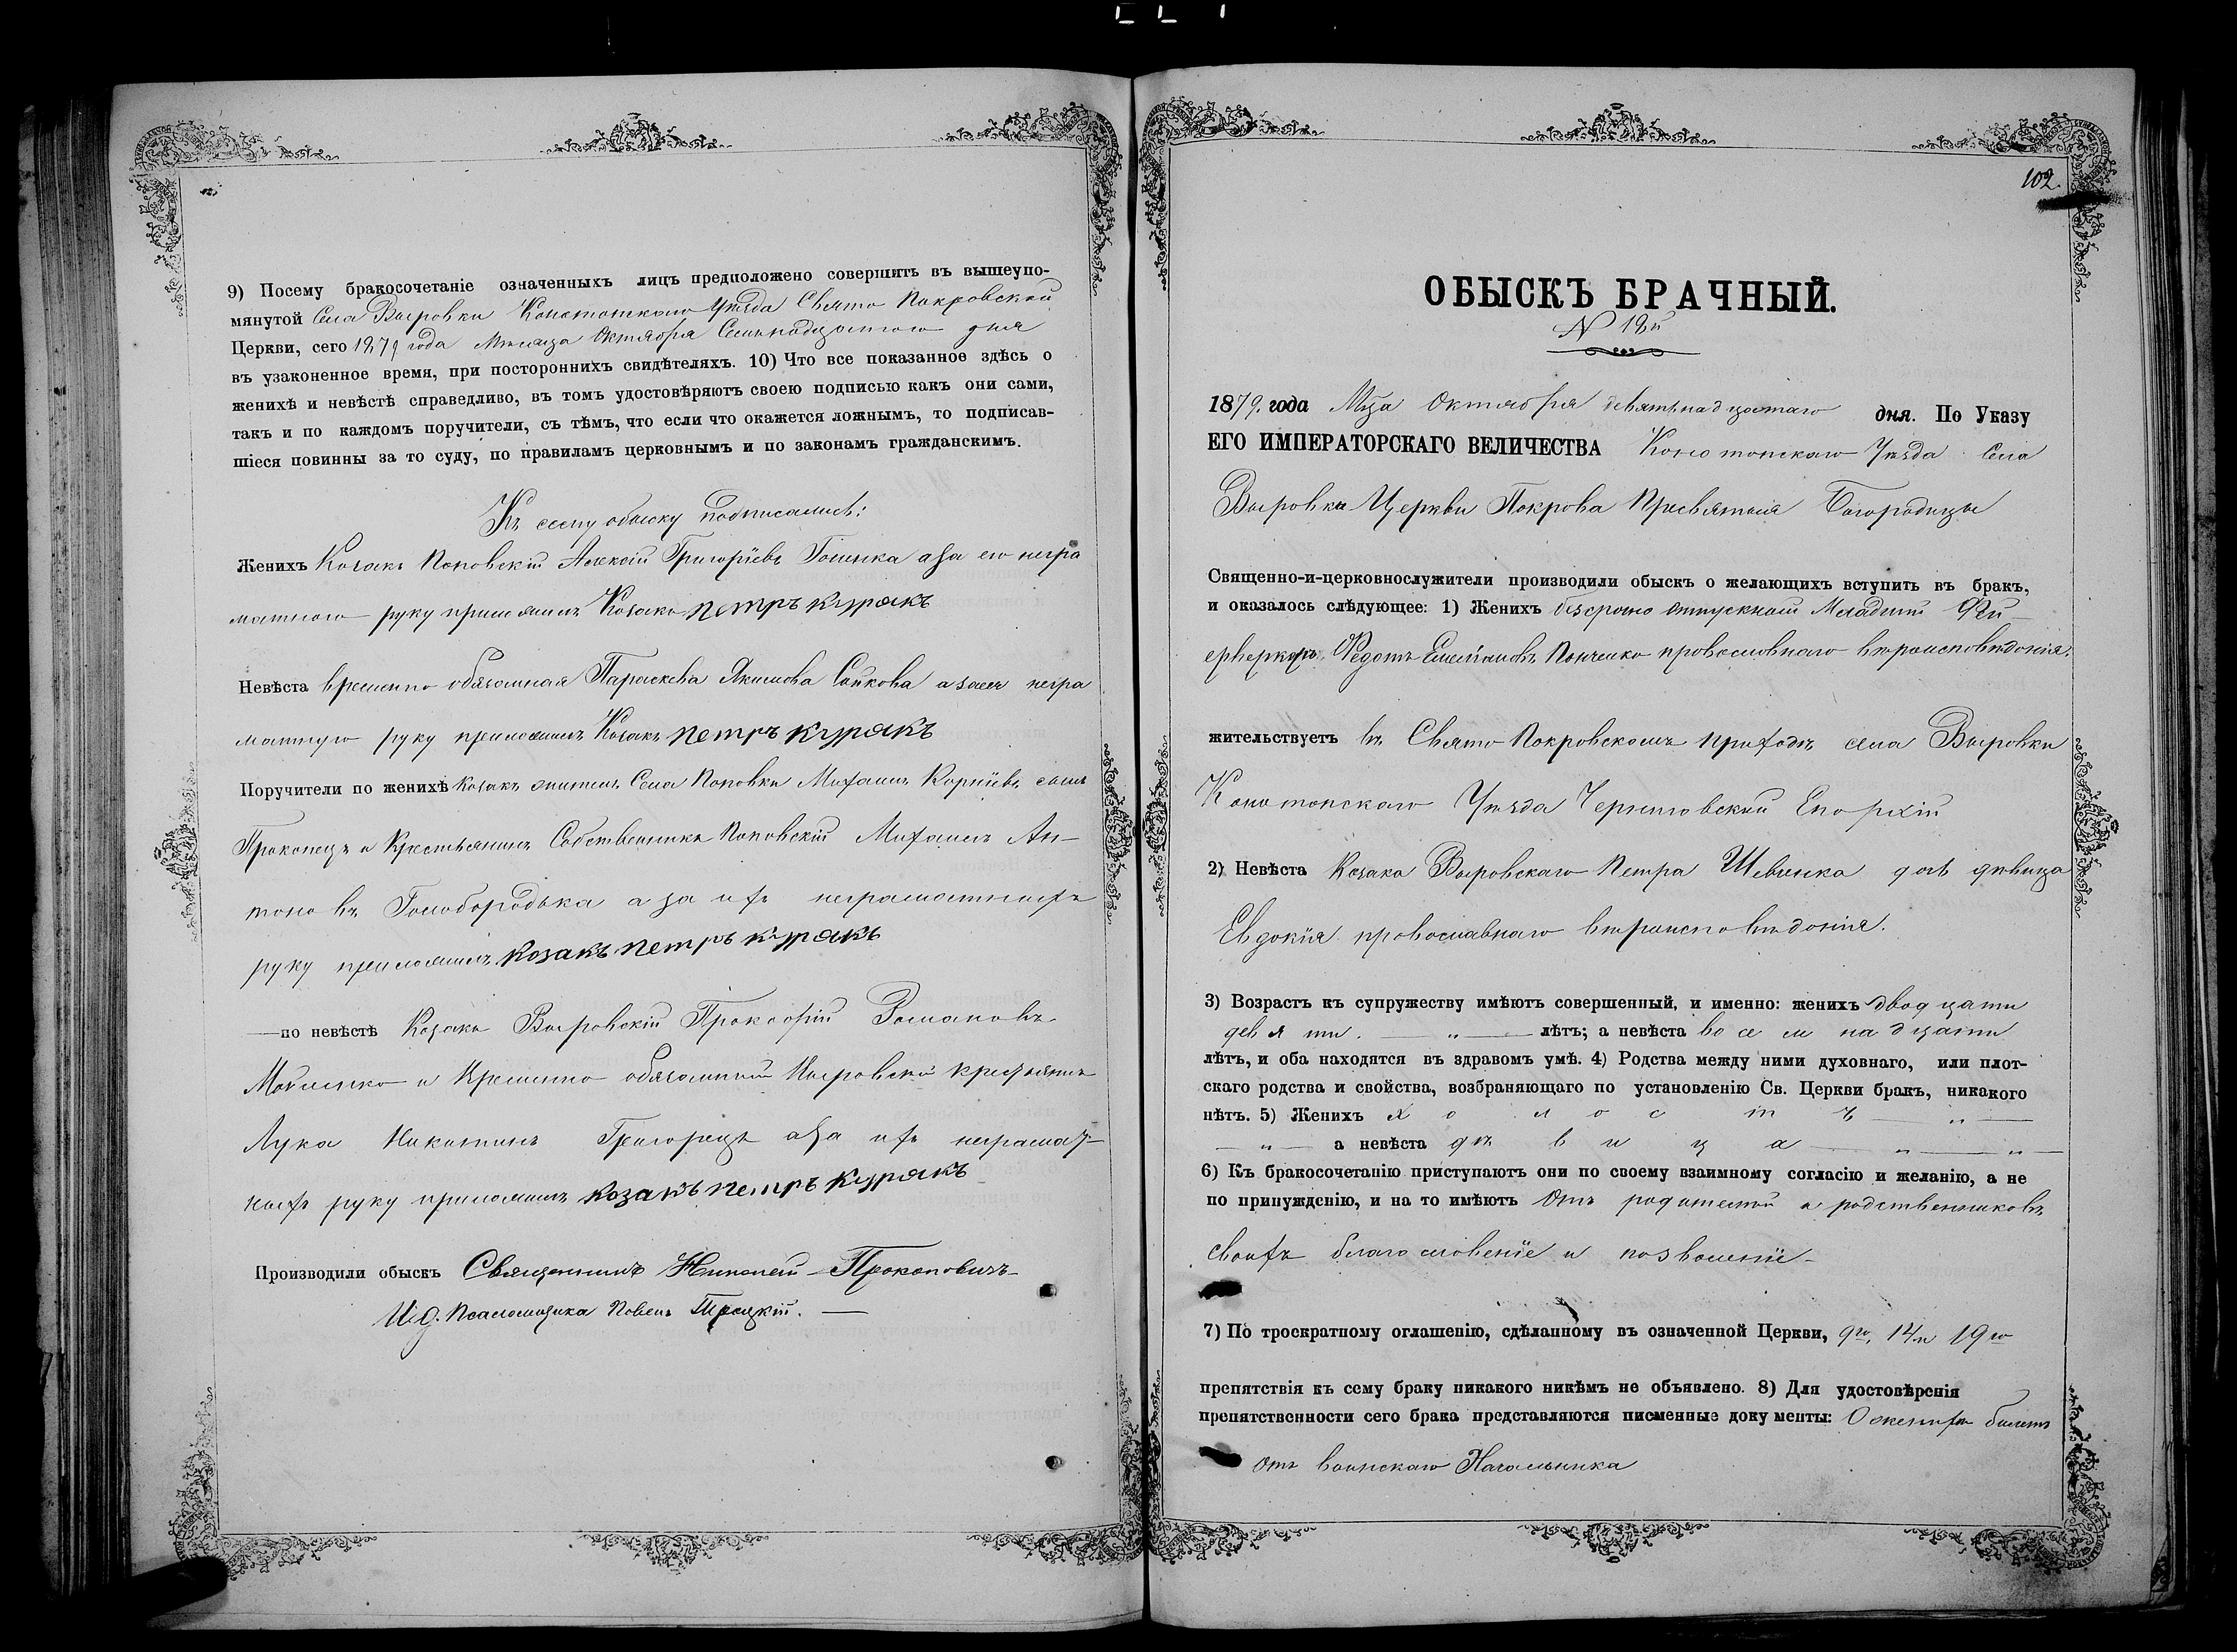 9) Посему бракосочетаніе означенныхъ лицъ предположено совершить въ вышеупо-
мянутой Села Выровки Конотопскаго Уѣзда Свято Покровской
Церкви, сего 1879 года Мѣсяца Октября Семьнадцатого дня
въ узаконенное время, при постороннихъ свидѣтеляхъ. 10) Что все показанное здѣсь о
женихѣ и невѣстѣ справедливо, въ томъ удостовѣряютъ своею подписью какъ они сами,
такъ и по каждомъ поручители, съ тѣмъ, что если что окажется ложнымъ, то подписав-
шіеся повинны за то суду, по правиламъ церковнымъ и по законамъ гражданскимъ.
Къ сему обыску подписались:
Женихъ Козакъ Поповскій Алексѣй Григоріевъ а за его негра
матного руку приложилъ Козакъ петръ курякъ
Невѣста временно обязанная Параскева Якимова а за нея негра
матную руку приложилъ Козакъ петръ курякъ
Поручители по женихѣ Козакъ житель Села Поповки Михаилъ Корнѣевъ сынъ
Прокопецъ и Крестьянинъ Собственникъ Поповскій Михаилъ Ан-
тоновъ Голобородька а за ихъ неграмотныхъ
руку приложилъ козакъ петръ курякъ
—по невѣстѣ Козакъ Выровскій Прокофій Романовъ
и Временно обязанный Выровскій крестьянинъ
Лука Никитинъ Григорецъ а за ихъ неграмат-
ныхъ руку приложилъ козакъ петръ курякъ
Производили обыскъ Священникъ Николай Прокоповичъ
И. д. Псаломщика Павелъ Троцкій. —
102.
ОБЫСКЪ БРАЧНЫЙ.
N 18й
1879. года Мца Октября девятьнадцатаго дня. По Указу
ЕГО ИМПЕРАТОРСКАГО ВЕЛИЧЕСТВА Конотопскаго Уѣзда Села
Выровки Церкви Покрова Пресвятыя Богородицы
Священно-и-церковнослужители производили обыскъ о желающихъ вступить въ бракъ,
и оказалось слѣдующее: 1) Женихъ безсрочно отпускной Младшій Фей-
ерверкеръ Федотъ Емельяновъ Панченко провославнаго вѣроисповѣданія.
жительствуетъ въ Свято Покровскомъ приходѣ села Выровки
Конотопскаго Уѣзда Черниговской Епархіи
2) Невѣста Козака Выровскаго Петра Шевчика дочь дѣвица
Евдокія провославнаго вѣроисповѣданія.
3) Возрастъ къ супружеству имѣютъ совершенный, и именно: женихъ двадцати
девяти. — „ — лѣтъ; а невѣста восемнадцати
лѣтъ, и оба находятся въ здравомъ умѣ. 4) Родства между ними духовнаго, или плот-
скаго родства и свойства, возбраняющаго по установленію Св. Церкви бракъ, никакого
нѣтъ. 5) Женихъ холостъ — „ —
— „ — а невѣста дѣвица — „ — „ —
6) Къ бракосочетанію приступаютъ они по своему взаимному согласію и желанію, а не
по принужденію, и на то имѣютъ Отъ родителей и родственниковъ
своихъ благословеніе и позволеніе —
7) По троекратному оглашенію, сдѣланному въ означенной Церкви, 9го, 14 и 19го
препятствія къ сему браку никакого никѣмъ не объявлено. 8) Для удостовѣренія
препятственности сего брака представляются писменные документы: О женихѣ билетъ
отъ воинскаго Начальника